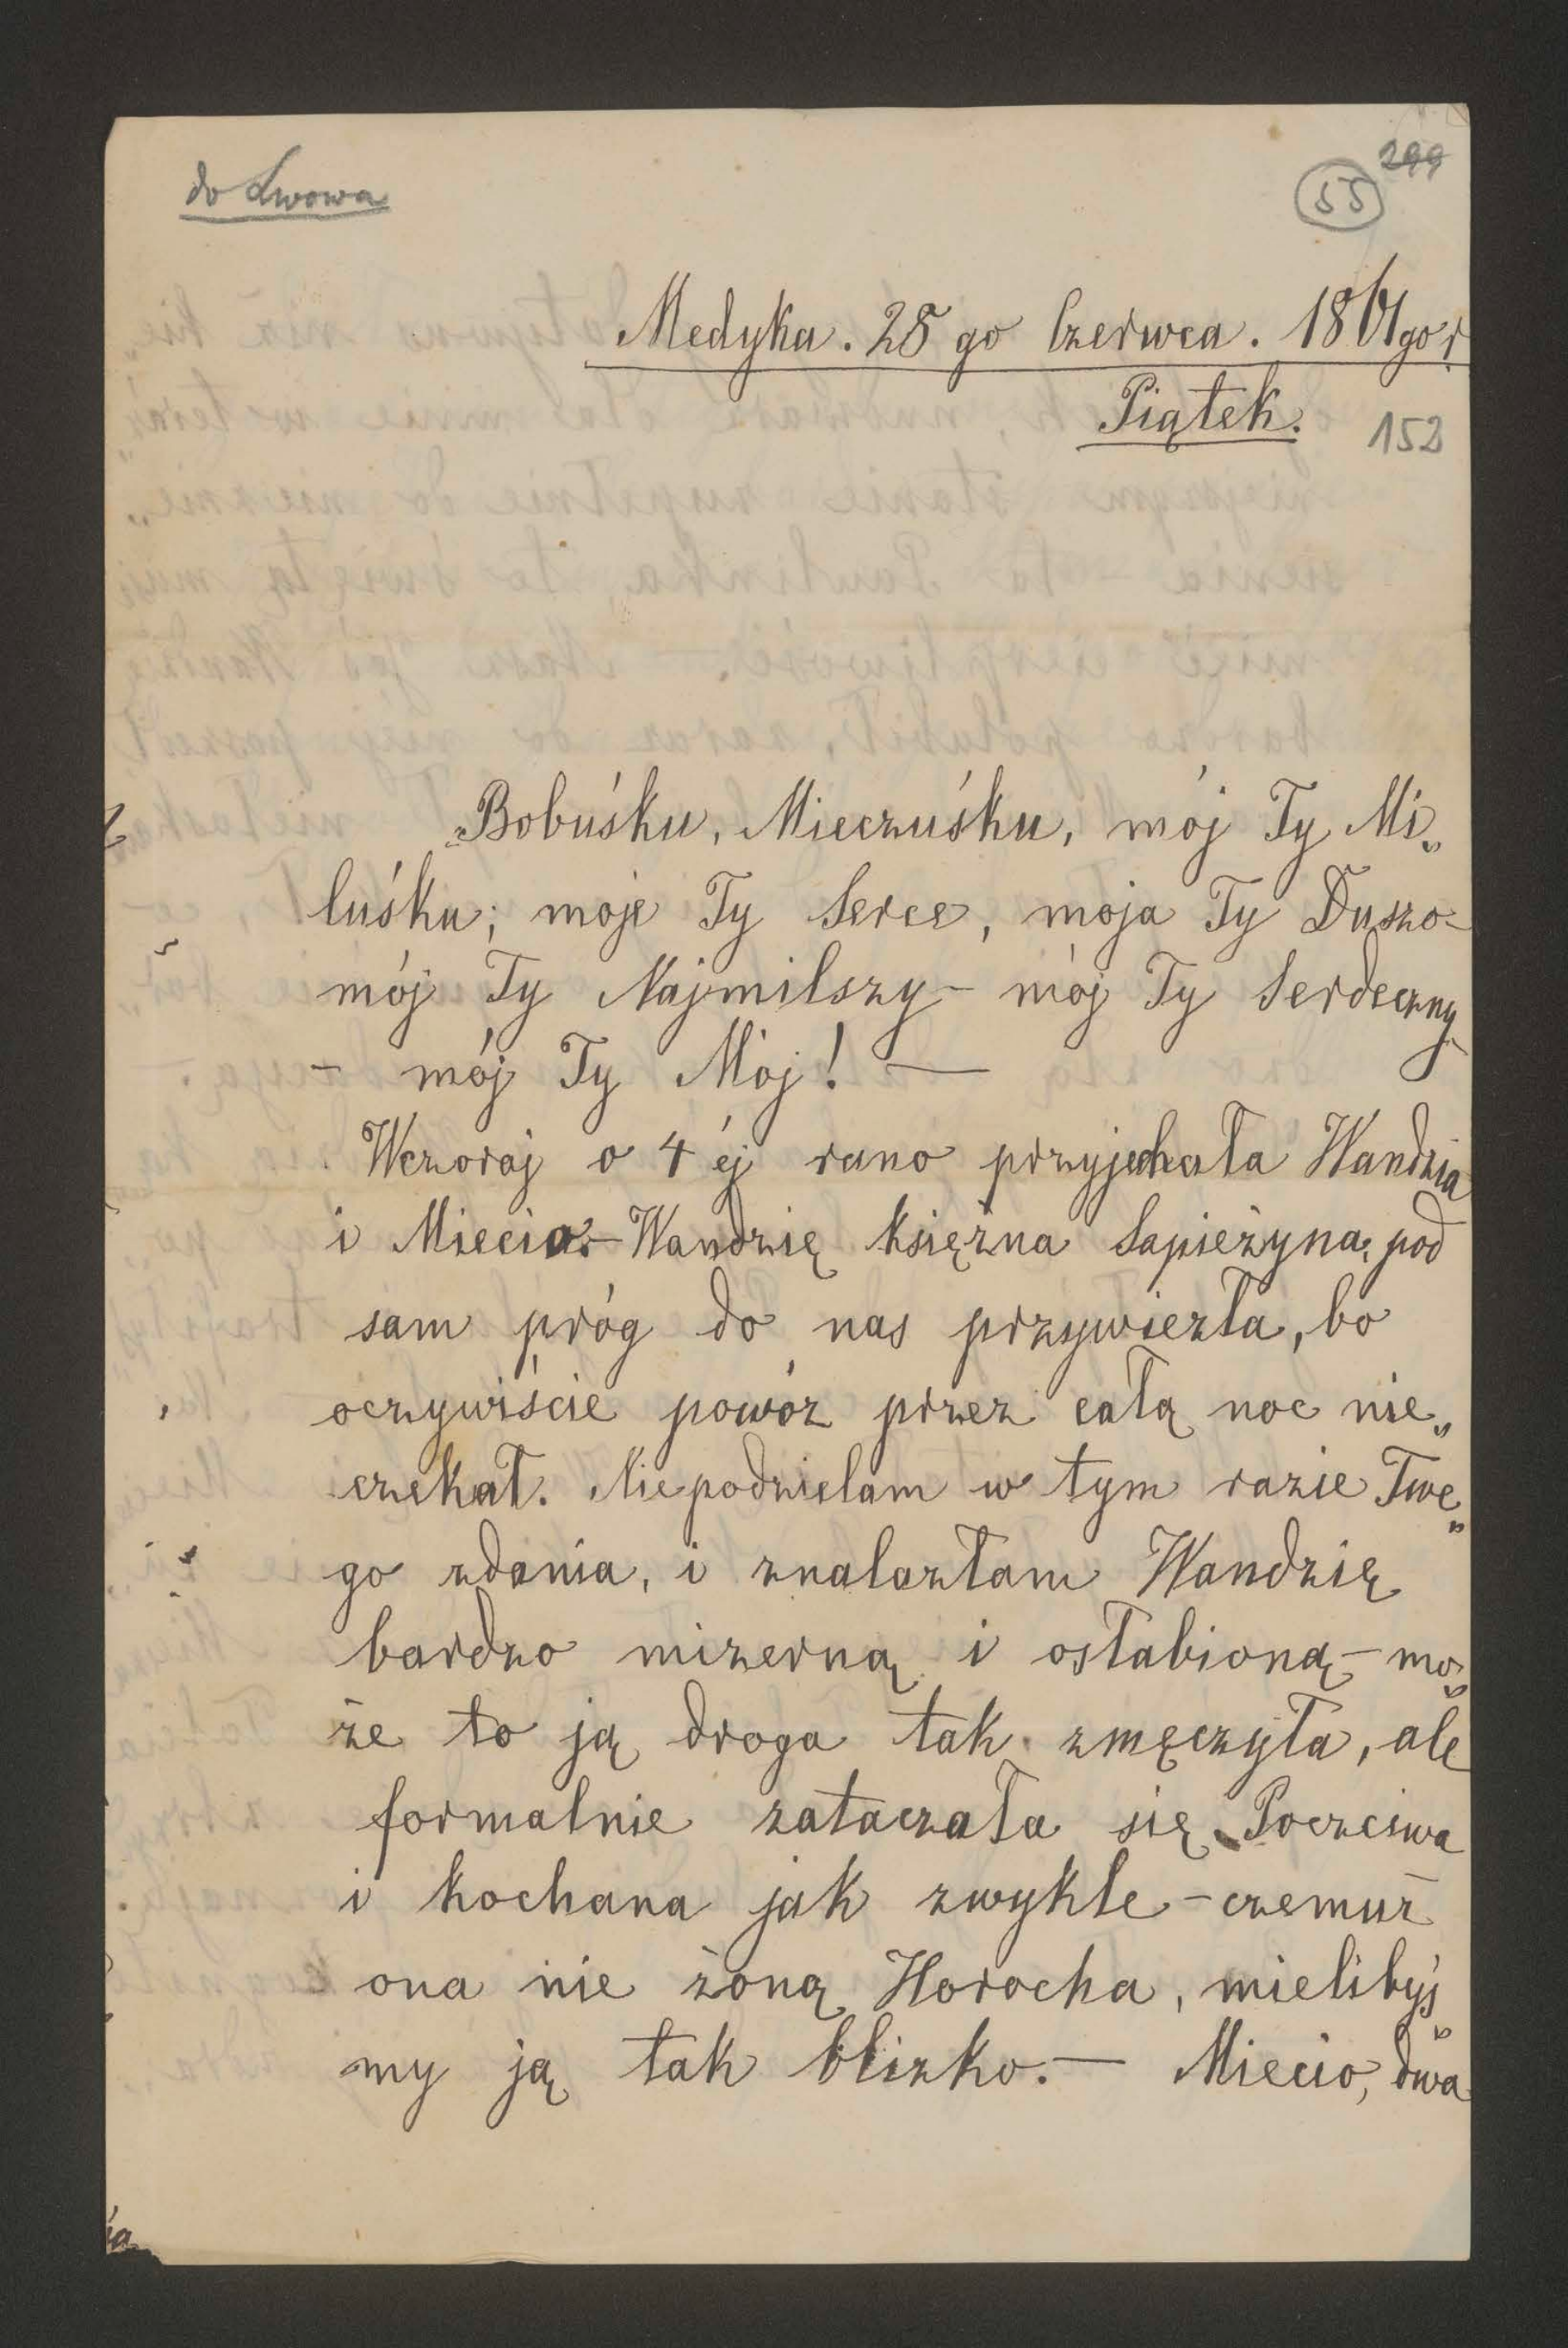 do Lwowa
299
55
Medyka. 28 go Czerwca. 1861 go r
Piątek.
152
Bobuśku, Mieczuśku, mój Ty Mi„
luśku; moje Ty Serce, moja Ty Duszo-
mój Ty Najmilszy - mój Ty Serdeczny
- mój Ty Mój! —
Wczoraj o 4 éj rano przyjechała Wandzia
i Miecio. - Wandzię księżna Sapieżyna, pod
sam próg do nas przywiezła, bo
oczywiście powóz przez całą noc nie„
czekał. Niepodzielam w tym razie Twe„
go zdania, i znalazłam Wandzię
bardzo mizerną i osłabioną - mo„
że to ją droga tak zmęczyła, ale
formalnie zataczała się. Poczciwa
i kochana jak zwykle - czemuż
ona nie żoną Horocha, mielibyś„
my ją tak blizko. — Miecio, dwa